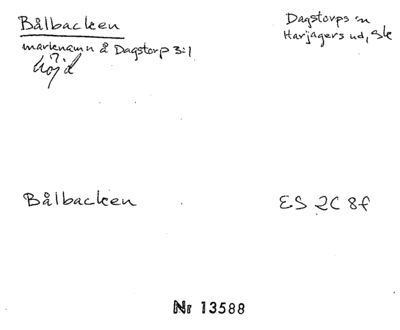 Bålbacken
Dagstorps sn
Harjagers hd, Sk
marknamn å Dagstorp 3:1
?
höjd
Bålbacken
ES 2C 8f
Nr 13588